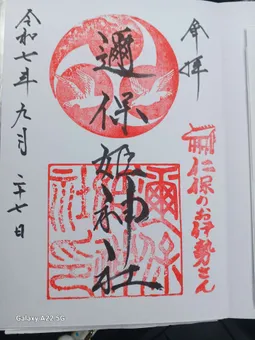 奉拝
仁保のお伊勢さん
邇保姫神社
邇保姫神社印
令和七年九月二十七日
Galaxy A22 5G